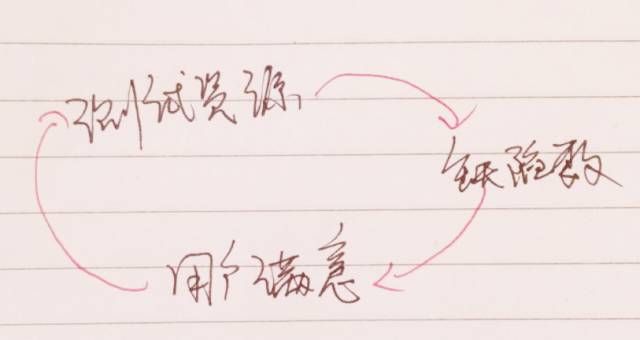 测试资源
缺陷数
用户满意